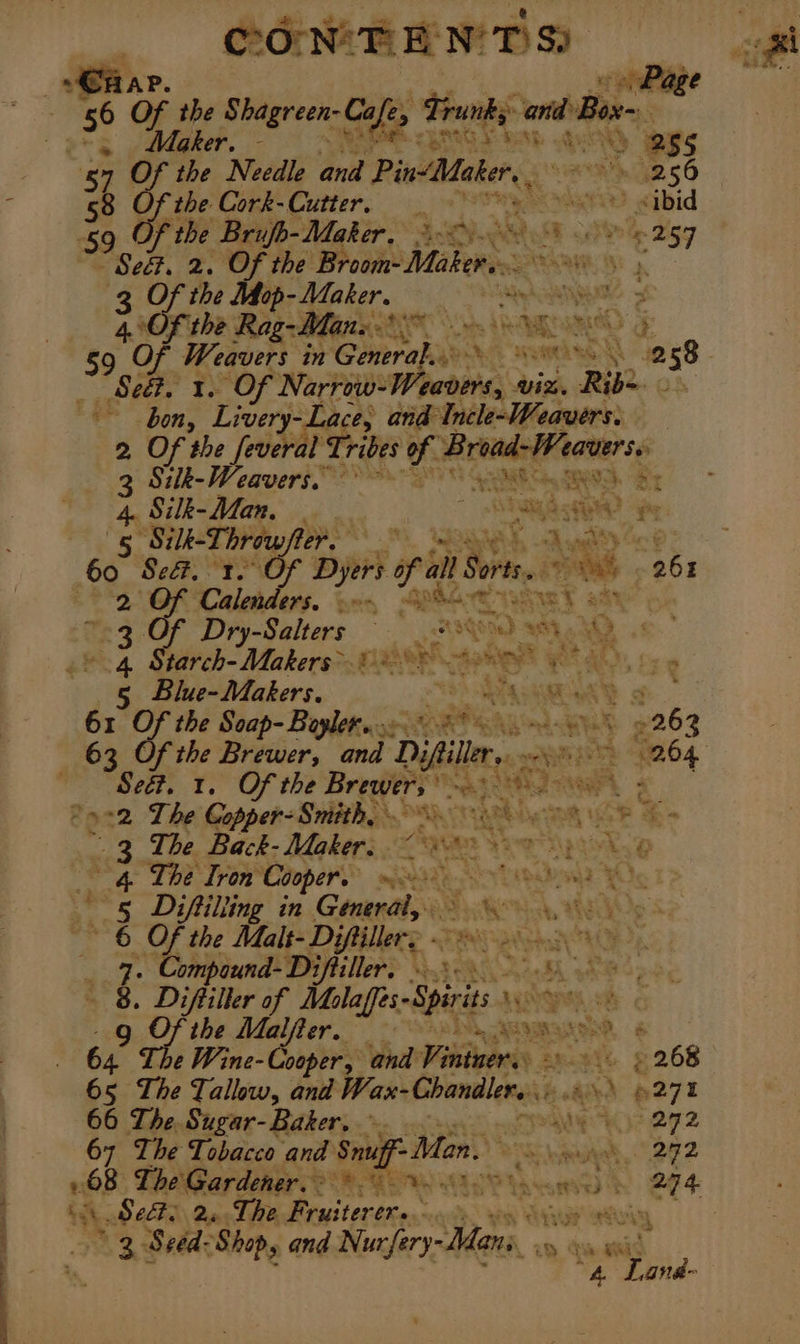 CONTENTS xi
Chap. Page
56 Of the Shagreen-Caſe, Trunk, and Box-
Maker. 255
57 Of the Needle and Pin-Maker. 256
58 Of the Cork-Cutter. ibid
59 Of the Bruſh-Maker. 257
Sect. 2. Of the Broom-Maker.
3 Of the Mop-Maker.
4 Of the Rag-Man.
59 Of Weavers in General. 258
Sect. 1. Of Narrow-Weavers, viz. Rib-
bon, Livery-Lace, and Incle-Weavers.
2 Of the ſeveral Tribes of Broad-Weavers.
3 Silk-Weavers.
4 Silk-Man.
5 Silk-Throwſter.
60 Sect. 1. Of Dyers of all Sorts. 261
2 Of Calenders.
3 Of Dry-Salters
4 Starch-Makers
5 Blue-Makers.
61 Of the Soap-Boyler. 263
63 Of the Brewer, and Diſtiller. 264
Sect. 1. Of the Brewer,
2 The Copper-Smith.
3 The Back-Maker.
4 The Iron Cooper.
5 Diſtilling in General,
6 Of the Malt-Diſtiller.
7. Compound-Diſtiller.
8. Diſtiller of Molaſſes-Spirits
9 Of the Malſter.
64 The Wine-Cooper, and Vintner. 268
65 The Tallow, and Wax-Chandler. 271
66 The Sugar-Baker. 272
67 The Tobacco and Snuff-Man. 272
68 The Gardener. 274
Sect. 2. The Fruiterer.
3 Seed-Shop, and Nurſery-Man.
4 Land-